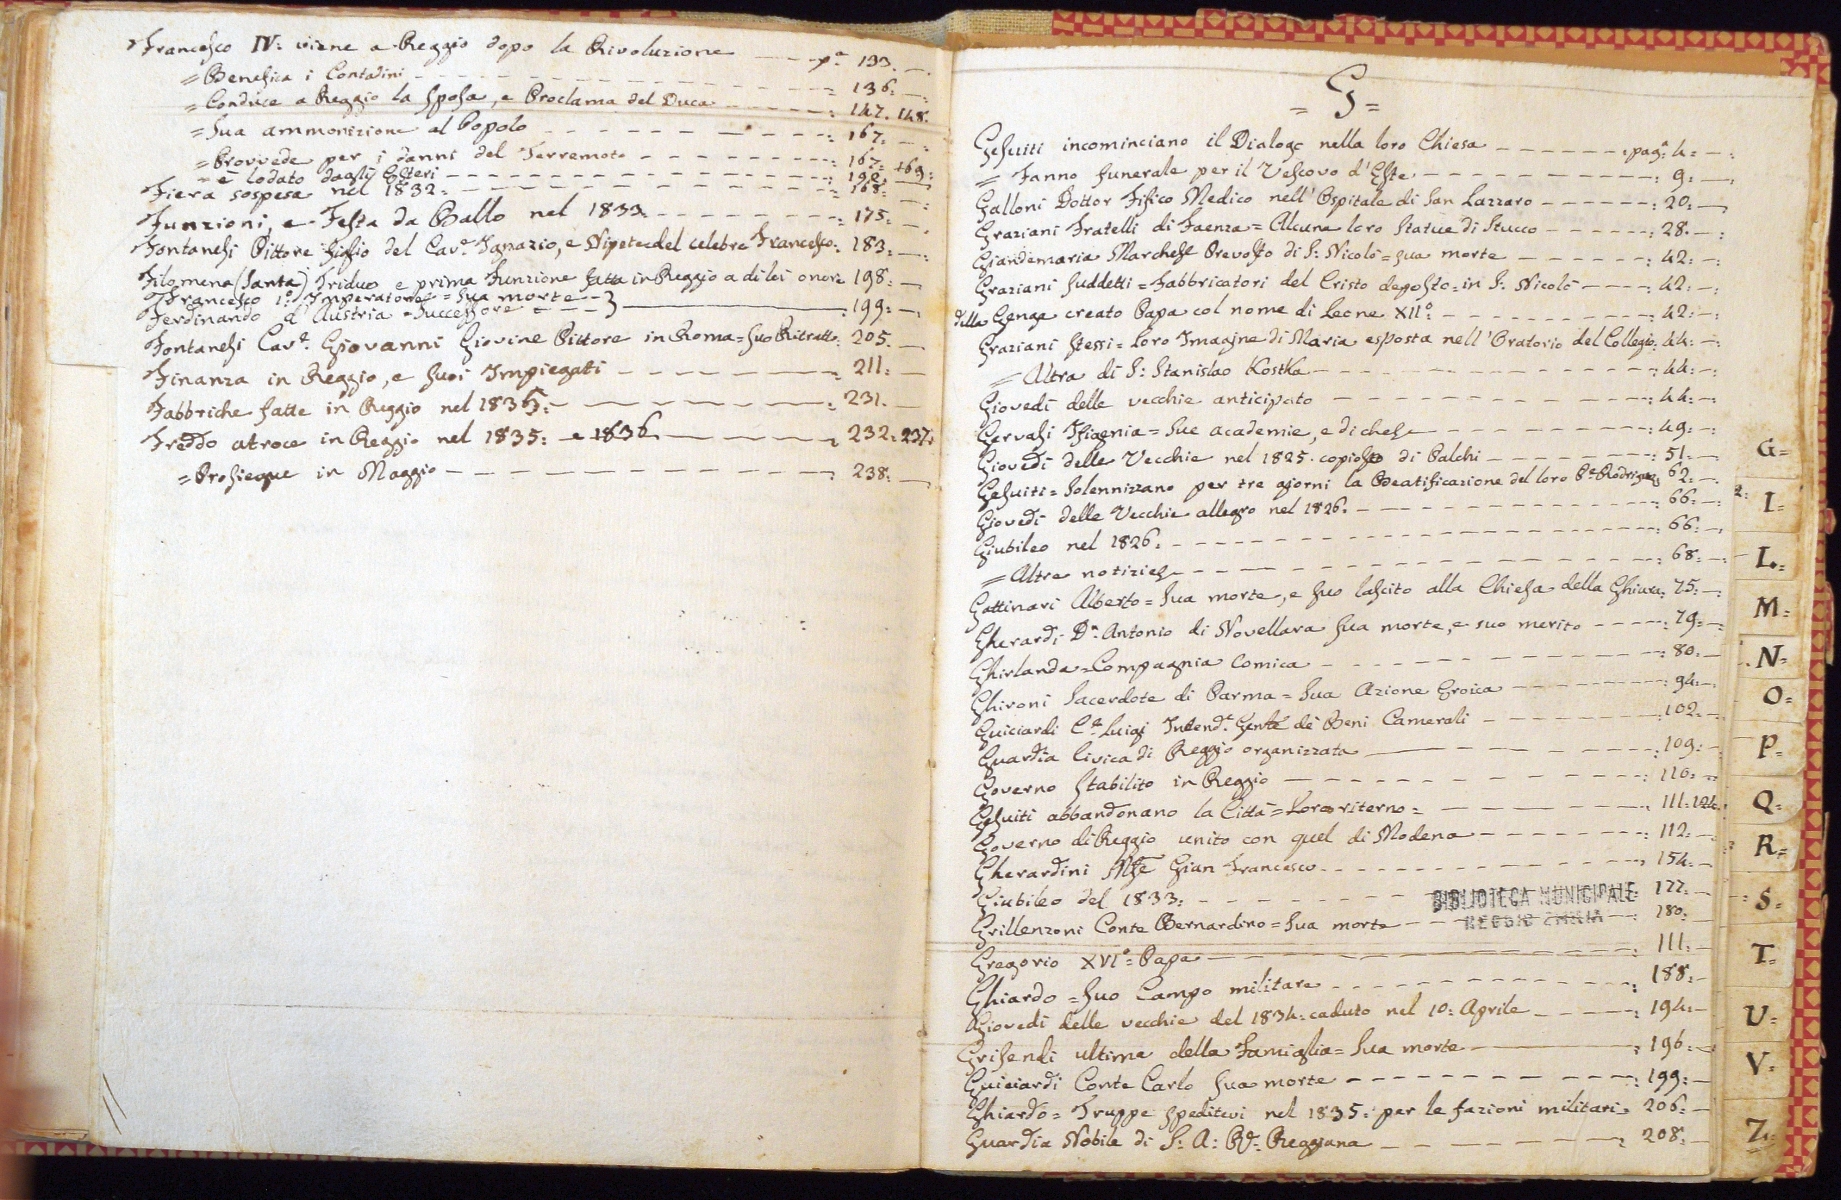 Francesco IV: viene a Reggio dopo la Rivoluzione — — pª 133. —
= Benefica i Contadini — — — 136. —
= Conduce a Reggio la sposa, e Proclama del Duca — — — 147. 148.
= Sua ammonizione al Popolo — — — 167. —
= Provvede per i danni del Terremoto — — — 167. 169.
= è lodato dagli Esteri — — — 190. —
Fiera sospesa nel 1832. — — — 168. —
Funzioni, e Festa da Ballo nel 1833. — — — 175. —
Fontanesi Pittore figlio del Cavº. Ignazio, e Nipote del celebre Francesco. 183. —
Filomena (Santa) Triduo e prima Funzione fatta in Reggio a di lei onore 198. —
Francesco 1º. Imperatore = sua morte — }
Ferdinando d'Austria = Successore — } — 199. —
Fontanesi Cavº. Giovanni Giovine Pittore in Roma = suo Ritratto. 205. —
Finanza in Reggio, e suoi Impiegati — — — 211. —
Fabbriche fatte in Reggio nel 1835. — — — 231. —
Freddo atroce in Reggio nel 1835: e 1836. — — 232. 237.
= Prosiegue in Maggio — — — 238. —
= G =
Gesuiti incominciano il Dialogo nella loro Chiesa — — — pagª. 4. —
= Fanno funerale per il Vescovo d'Este — — — 9. —
Galloni Dottor Fisico Medico nell'Ospitale di San Lazzaro — — — 20. —
Graziani Fratelli di Faenza = Alcune loro Statue di Stucco — — — 28. —
Giandemaria Marchese Prevosto di S: Nicolò = sua morte — — — 42. —
Graziani suddetti = Fabbricatori del Cristo deposto = in S: Nicolò — — — 42. —
della Genga creato Papa col nome di Leone XIIº. — — — 42. —
Graziani stessi = loro Imagine di Maria esposta nell'Oratorio del Collegio. 44. —
= Altra di S: Stanislao Kostka — — — 44. —
Giovedì delle vecchie anticipato — — — 44. —
Gervasi Ifigenia = sue academie, e dichese — — — 49. —
Giovedì delle Vecchie nel 1825. copioso di Palchi — — — 51. —
Gesuiti = Solennizzano per tre giorni la Beatificazione del loro Pe. Rodriguez 62. —
Giovedì delle Vecchie allegro nel 1826. — — — 66. —
Giubileo nel 1826. — — — 66. —
= Altre notizie — — — 68. —
Gattinari Alberto = Sua morte, e suo lascito alla Chiesa della Ghiara. 75. —
Gherardi Dn. Antonio di Novellara sua morte, e suo merito — — — 79. —
Ghirlanda = Compagnia Comica — — — 80. —
Ghironi Sacerdote di Parma = Sua Azione Eroica — — — 94. —
Guiciardi Ce. Luigi Intend.e Gente de Beni Camerali — — — 102. —
Guardia Civica di Reggio organizzata — — — 109. —
Governo stabilito in Reggio — — — 110. —
Gesuiti abbandonano la Città = Loro riterno = — — — 111. 124.
Governo di Reggio unito con quel di Modena — — — 112. —
Gherardini Mse Gian Francesco — — — 154. —
Giubileo del 1833. — — — 177. —
Grillenzoni Conte Bernardino = Sua morte — — — 180. —
BIBLIOTECA MUNICIPALE
REGGIO EMILIA
Gregorio XVIº = Papa — — — 111. —
Ghiardo = suo Campo militare — — — 188. —
Giovedì delle vecchie del 1834. caduto nel 10. Aprile — — — 194. —
Grisendi ultima della Famiglia = Sua morte — — — 196. —
Guiciardi Conte Carlo sua morte — — — 199. —
Ghiardo = Truppe speditevi nel 1835. per le fazioni militari. 206. —
Guardia Nobile di S: A: Re. Reggiana — — — 208. —
G=
I=
L.=
M=
N=
O=
P=
Q=
R=
S=
T=
U=
V=
Z.=